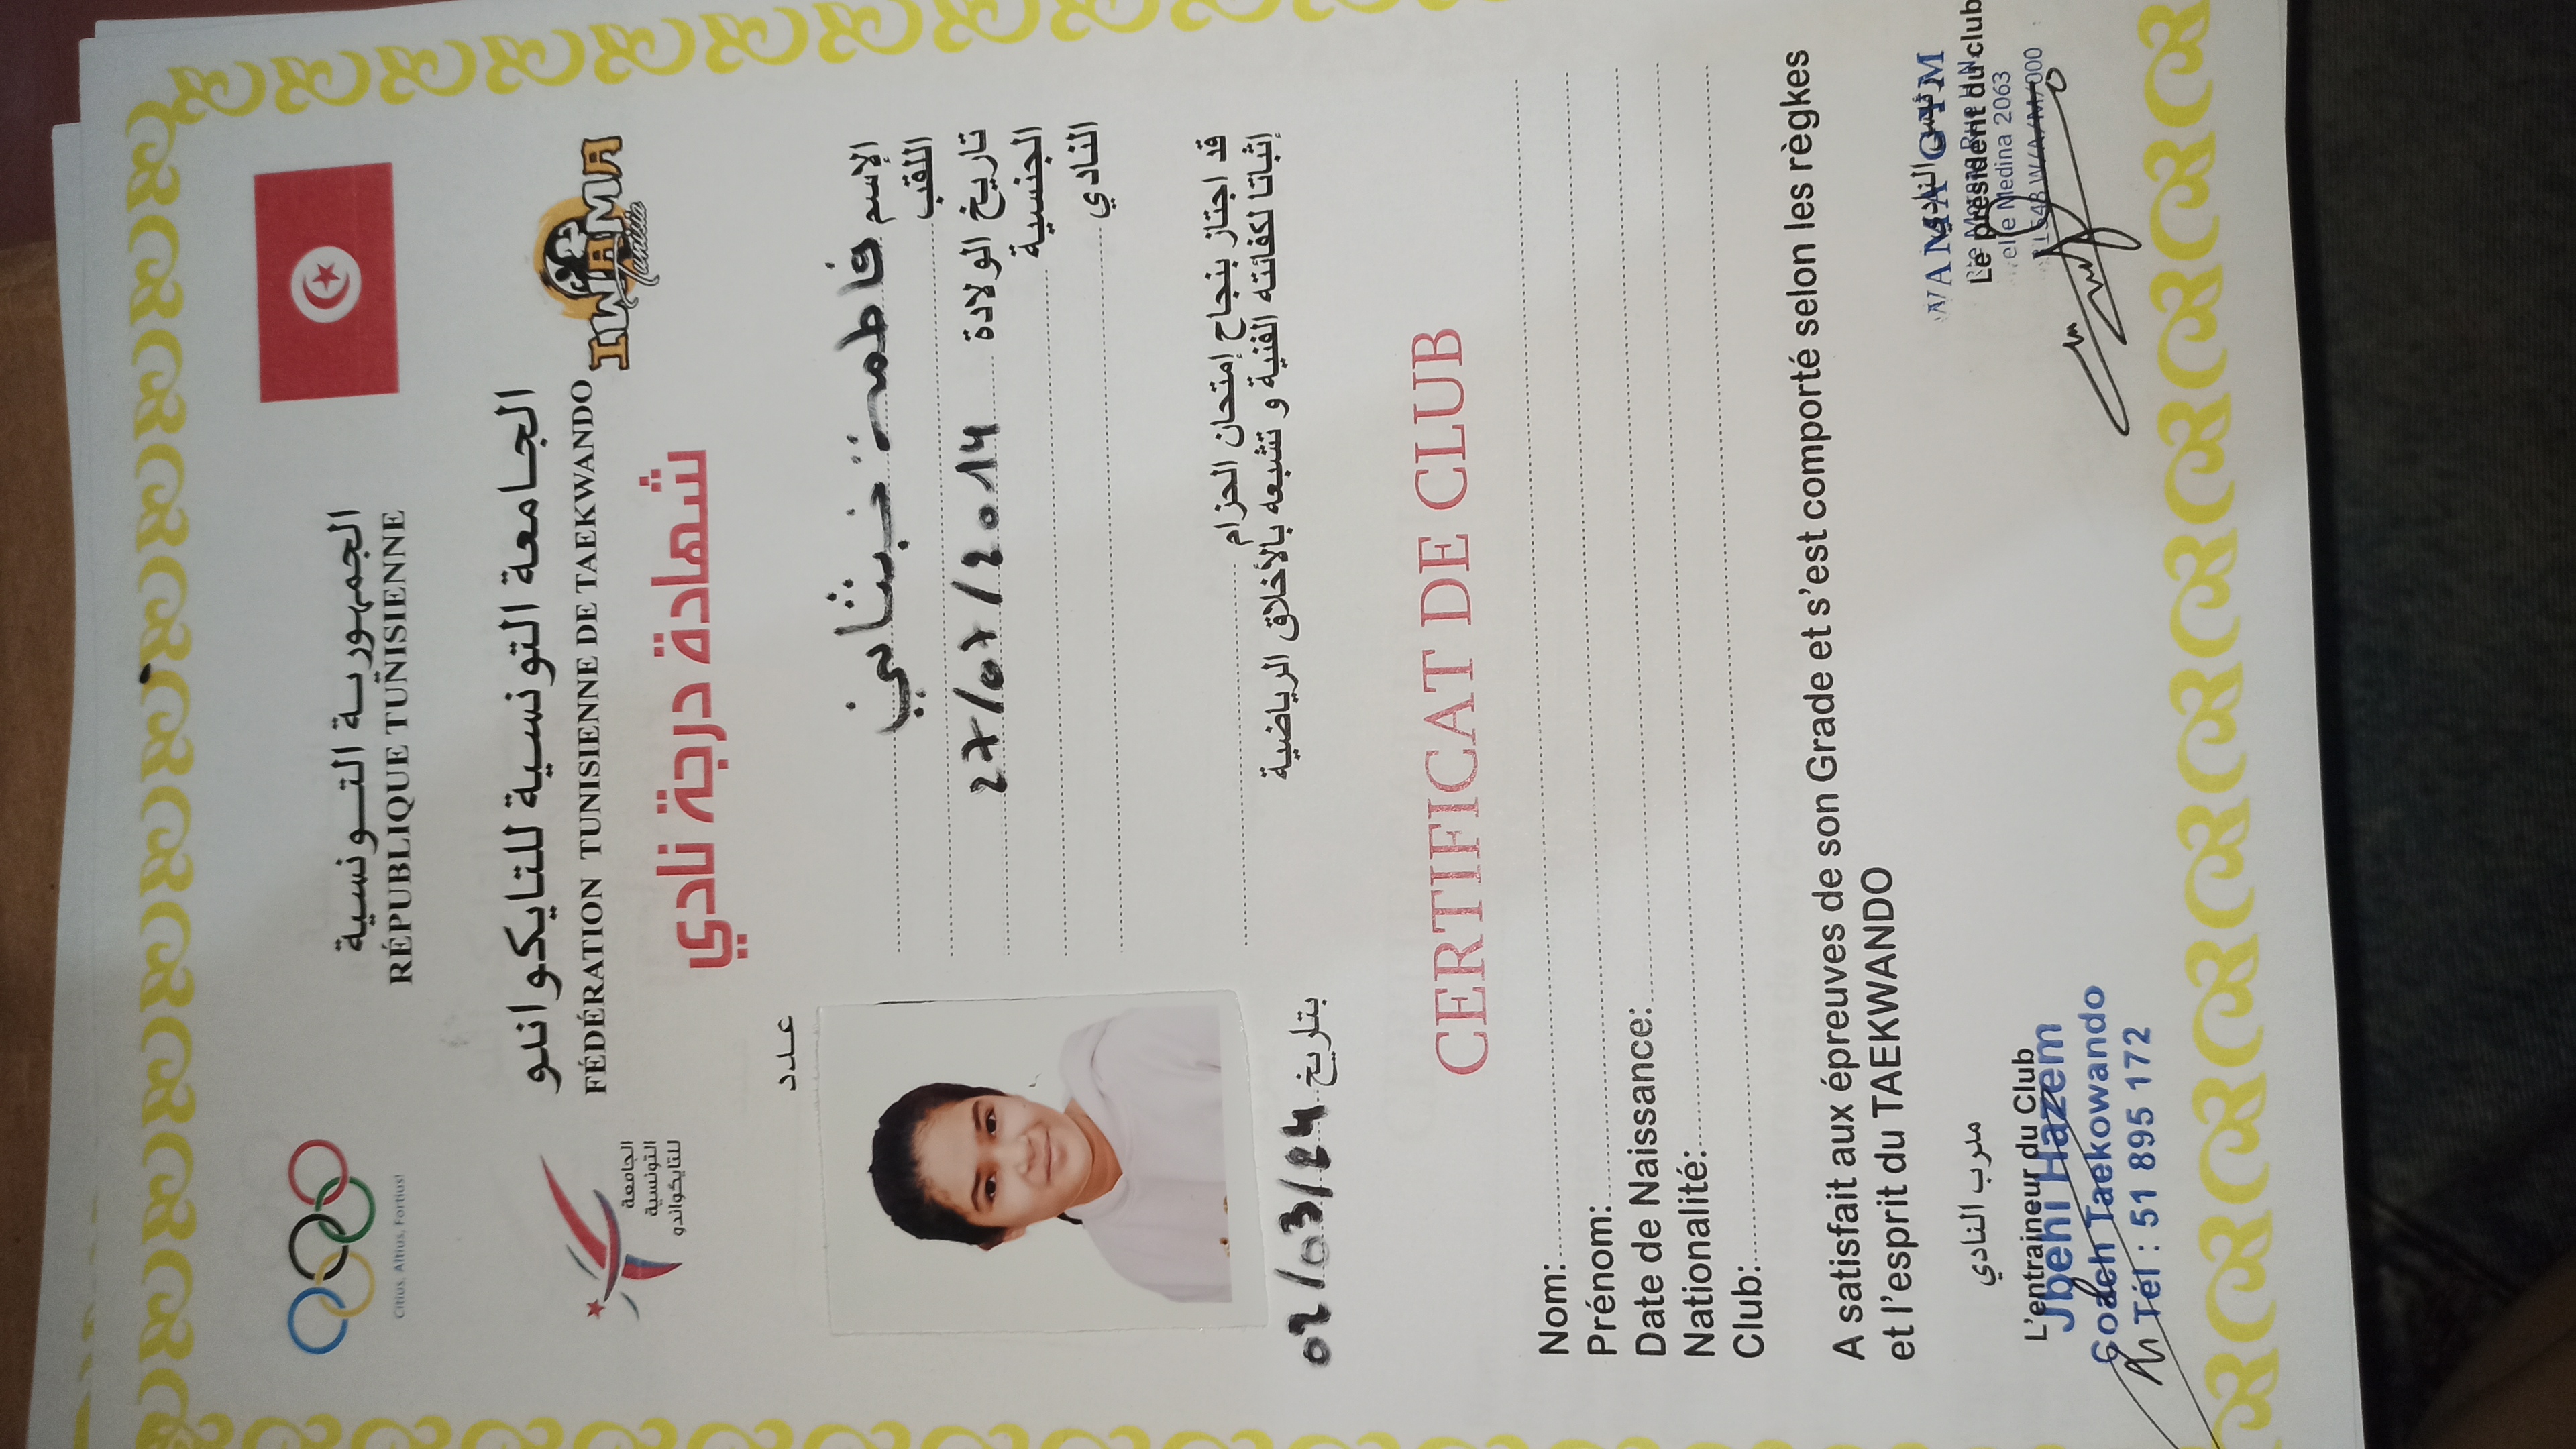 الجمهورية التونسية
RÉPUBLIQUE TUNISIENNE
Citius, Altius, Fortius!
الجامعة التونسية للتايكواندو
FÉDÉRATION TUNISIENNE DE TAEKWANDO
الجامعة
التونسية
للتايكواندو
IWAMA
Tunisia
شهادة درجة نادي
عدد
الإسم فاطمة
اللقب
تاريخ الولادة 27/07/2014
الجنسية
النادي
قد اجتاز بنجاح إمتحان الحزام
إثباتا لكفائته الفنية و تشبعه بالأخلاق الرياضية
بتاريخ 02/03/24
CERTIFICAT DE CLUB
Nom:
Prénom:
Date de Naissance:
Nationalité:
Club:
A satisfait aux épreuves de son Grade et s'est comporté selon les règkes
et l'esprit du TAEKWANDO
مدرب النادي
L'entraineur du Club
Jbehi Hazem
Coach Taekowando
Tél : 51 895 172
Le président du club
WAMA GYM
elle Medina 2063